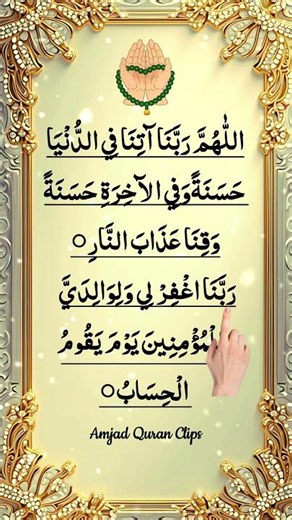 اللّٰهُمَّ رَبَّنَا آتِنَا فِي الدُّنْيَا
حَسَنَةً وَفِي الآخِرَةِ حَسَنَةً
وَقِنَا عَذَابَ النَّارِ ○
رَبَّنَا اغْفِرْ لِي وَلِوَالِدَيَّ
لْمُؤْمِنِينَ يَوْمَ يَقُومُ
الْحِسَابُ ○
Amjad Quran Clips